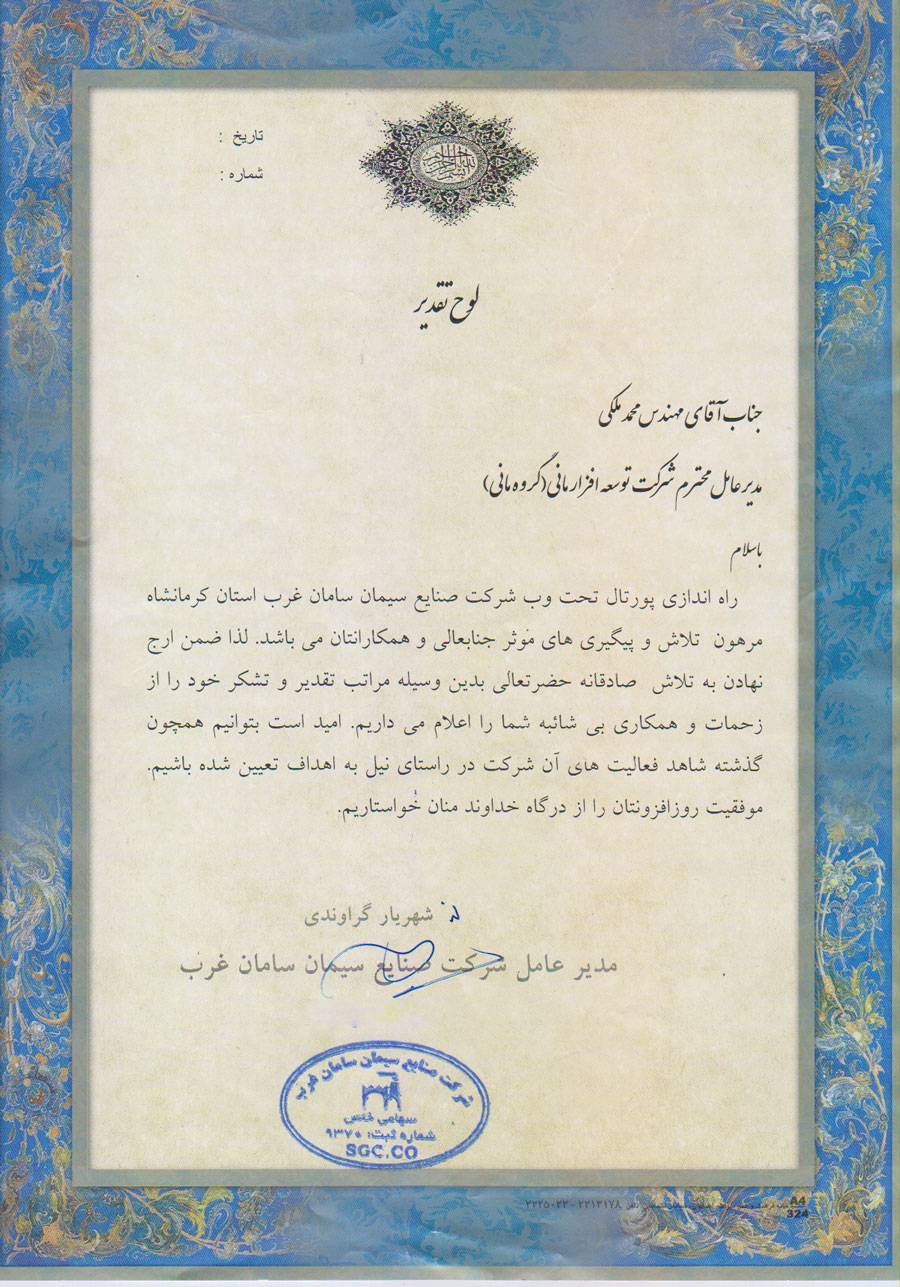 بسم الله الرحمن الرحیم
تاریخ :
شماره :
لوح تقدیر
جناب آقای مهندس محمد ملکی
مدیرعامل محترم شرکت توسعه افزار مانی (گروه مانی)
باسلام
راه اندازی پورتال تحت وب شرکت صنایع سیمان سامان غرب استان کرمانشاه
مرهون تلاش و پیگیری های موثر جنابعالی و همکارانتان می باشد. لذا ضمن ارج
نهادن به تلاش صادقانه حضرتعالی بدین وسیله مراتب تقدیر و تشکر خود را از
زحمات و همکاری بی شائبه شما را اعلام می داریم. امید است بتوانیم همچون
گذشته شاهد فعالیت های آن شرکت در راستای نیل به اهداف تعیین شده باشیم.
موفقیت روزافزونتان را از درگاه خداوند منان خواستاریم.
شهریار گراوندی
مدیر عامل شرکت صنایع سیمان سامان غرب
شرکت صنایع سیمان سامان غرب
سهامی خاص
شماره ثبت: ۹۳۷۰
SGC.CO
A4
324
۲۲۲۵۰۲۲ - ۲۲۱۳۱۷۸